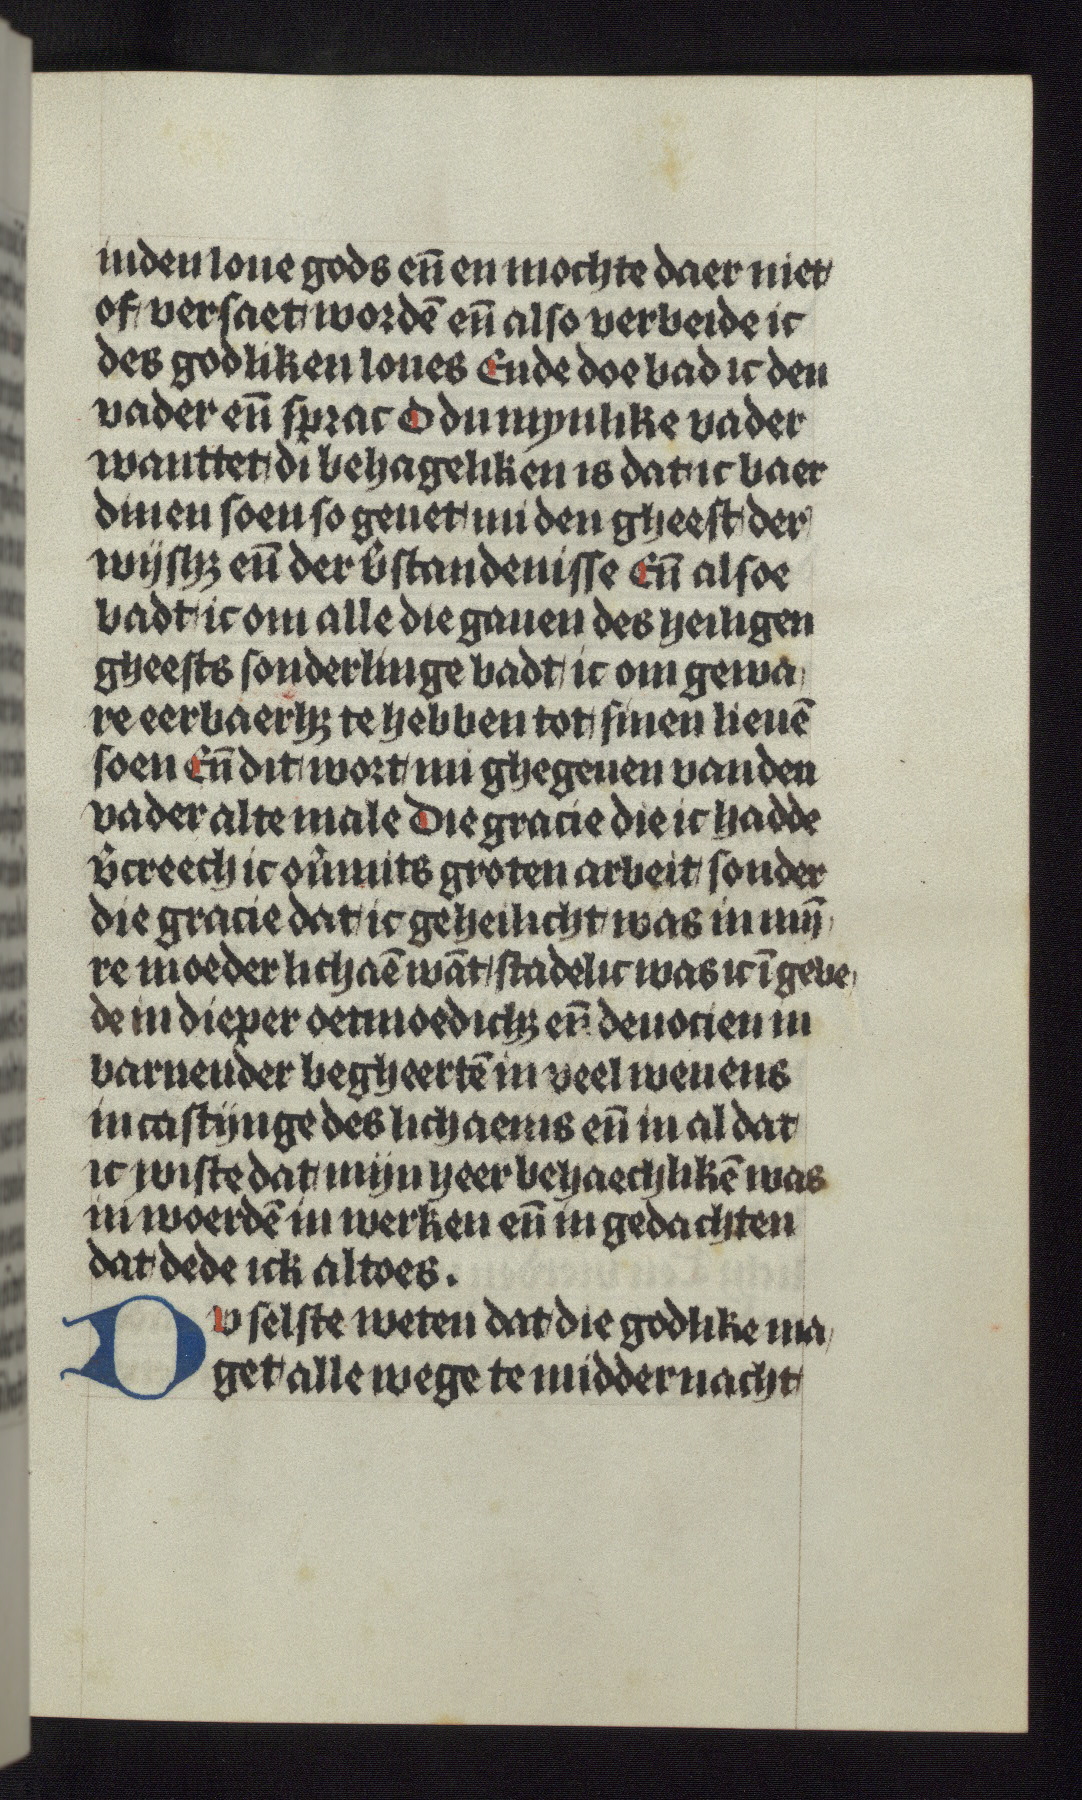 inden loue gods en̄ en mochte daer niet
of versaet wordē en̄ also verbeide ic
des godliken loues Ende doe bad ic den
vader en̄ sprac O du mynlike vader
wanttet di behageliken is dat ic baer
dinen soen so geuet mi den gheest der
wijsh⁊ en̄ der v̄standenisse En̄ alsoe
badt ic om alle die gauen des heiligen
gheests sonderlinge badt ic om gewa
re eerbaerh⁊ te hebben tot sinen lieuē
soen En̄ dit wort mi ghegeuen vanden
vader alte male Die gracie die ic hadde
v̄creech ic ou̅mits groten arbeit sonder
die gracie dat ic geheilicht was in mȳ
re moeder lichaē wāt stadelic was ic ī gebe
de in dieper oetmoedich⁊ en̄ deuocien in
barnender begheertē in veel weuens
in castijnge des lichaems en̄ in al dat
ic wiste dat mijn heer behaechlikē was
in woerdē in werken en̄ in gedachten
dat dede ick altoes.
Dv selste weten dat die godlike ma
get alle wege te middernacht